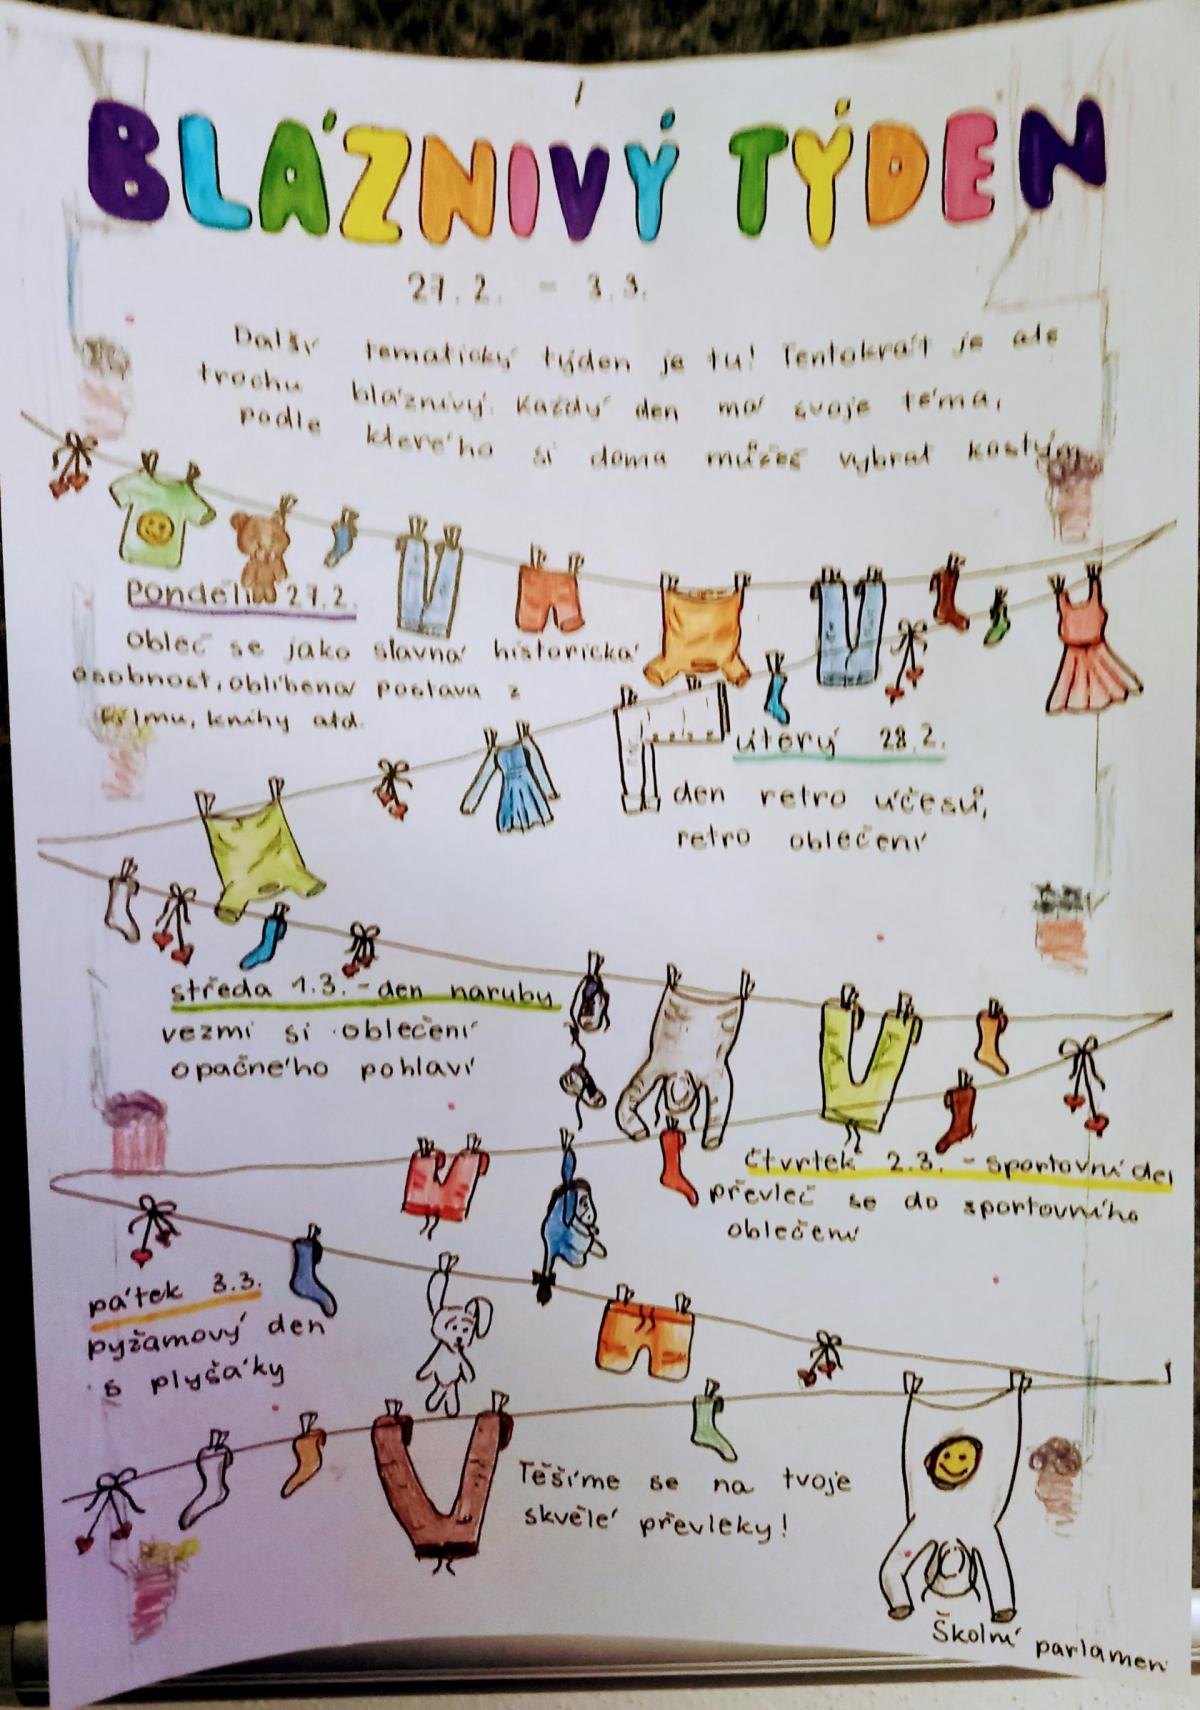 BLÁZNIVÝ TÝDEN
27.2. - 3.3.
Další tematický týden je tu! Tentokrát je ale
trochu bláznivý. Každý den má svoje téma,
podle kterého si doma můžeš vybrat kostým
Pondělí 27.2.
obleč se jako slavná historická
osobnost, oblíbená postava z
filmu, knihy atd.
úterý 28.2.
den retro účesů,
retro oblečení
středa 1.3. - den naruby
vezmi si oblečení
opačného pohlaví
čtvrtek 2.3. - sportovní de
převleč se do sportovního
oblečení
pátek 3.3.
pyžamový den
s plyšáky
Těšíme se na tvoje
skvělé převleky!
Školní parlamen